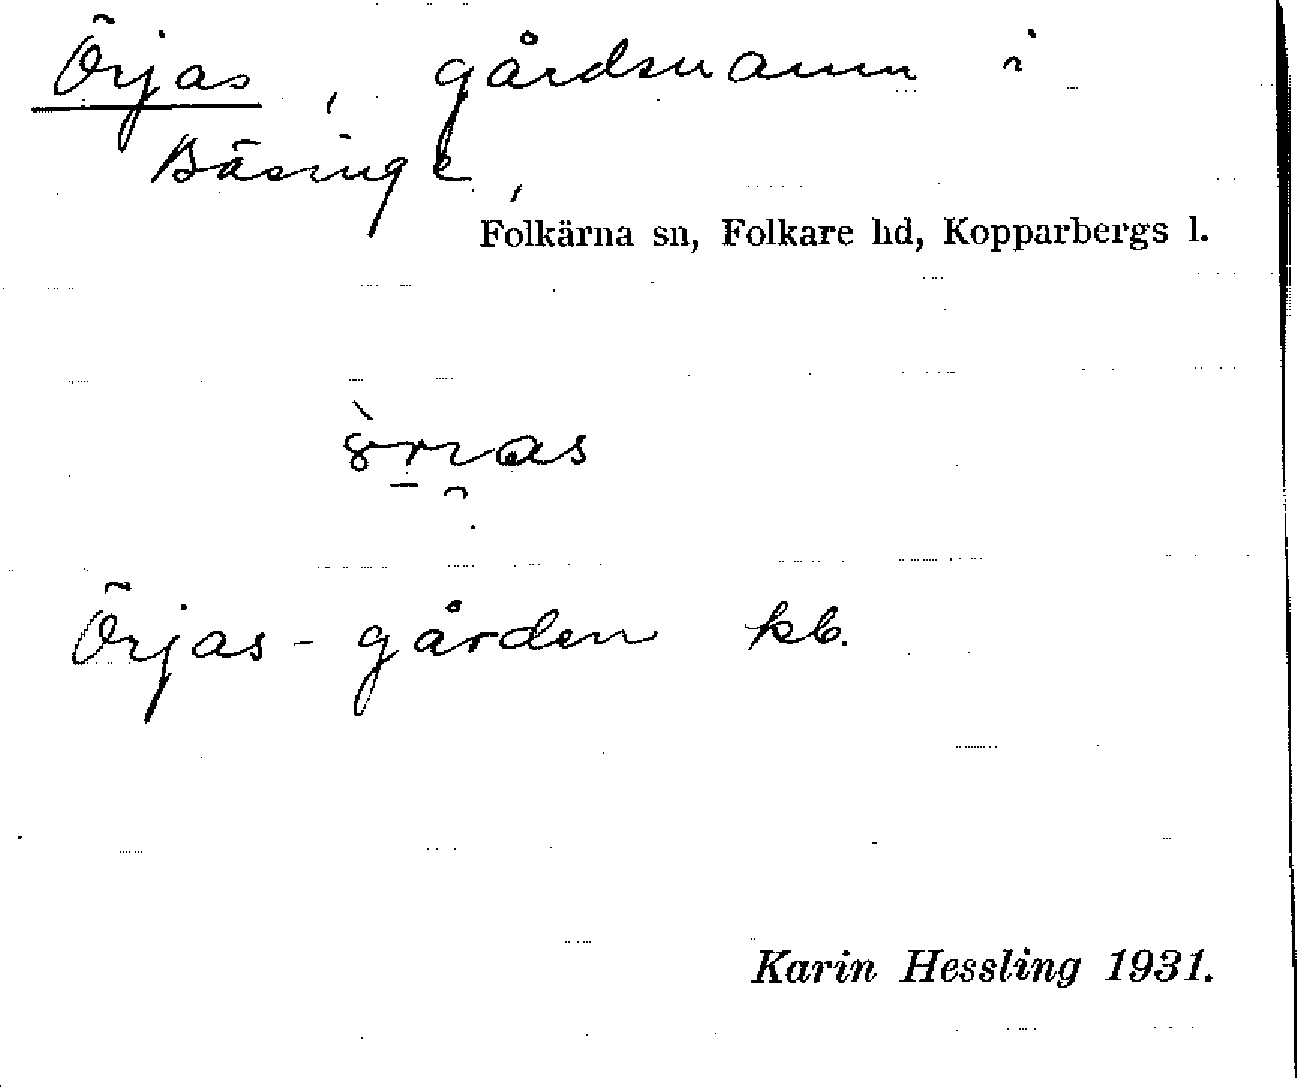 Örjas, gårdsnamn i
Bäsinge,
Folkärna sn, Folkare hd, Kopparbergs l.
Örjas-gården kb.
Karin Hessling 1931.